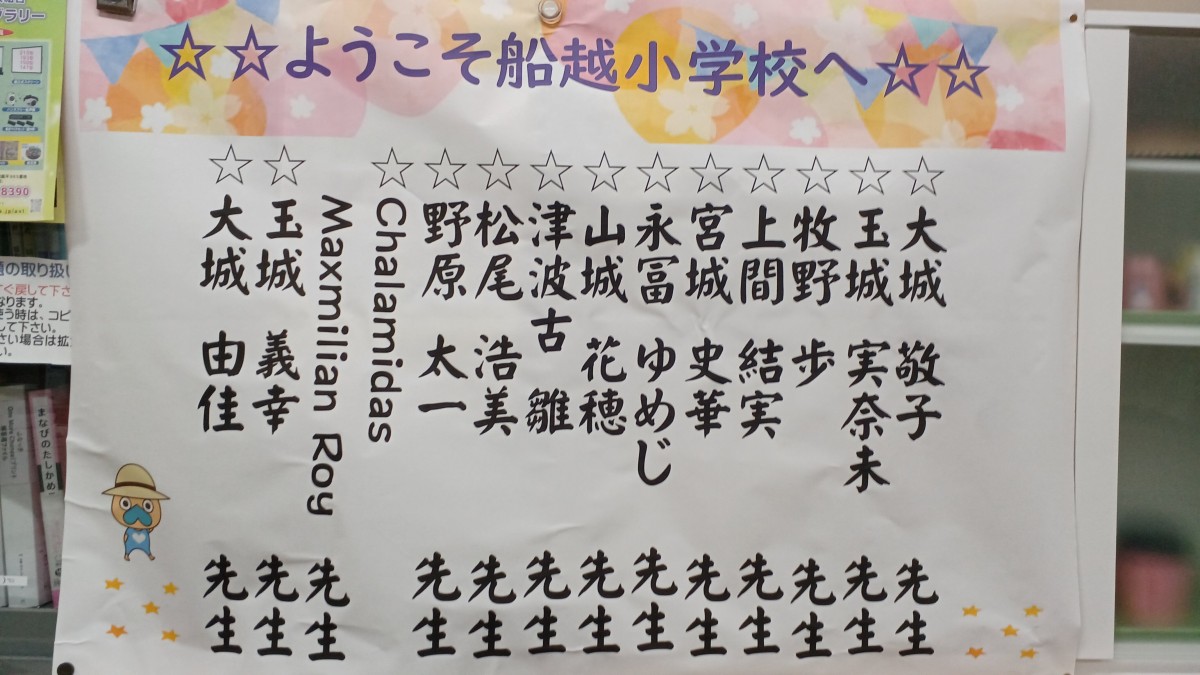 ☆☆ようこそ船越小学校へ☆☆
☆大城 敬子 先生
☆玉城 実奈未 先生
☆牧野 歩 先生
☆上間 結実 先生
☆宮城 史華 先生
☆永冨 ゆめじ 先生
☆山城 花穂 先生
☆津波古 雛 先生
☆松尾 浩美 先生
☆野原 太一 先生
☆Chalamidas
Maxmilian Roy 先生
☆玉城 義幸 先生
☆大城 由佳 先生
ラリー
8390
の取り扱い
ぐ戻して下さ
なります。
使う時は、コピ
して下さい。
さい場合は拡
い。
まなびのたしかめ